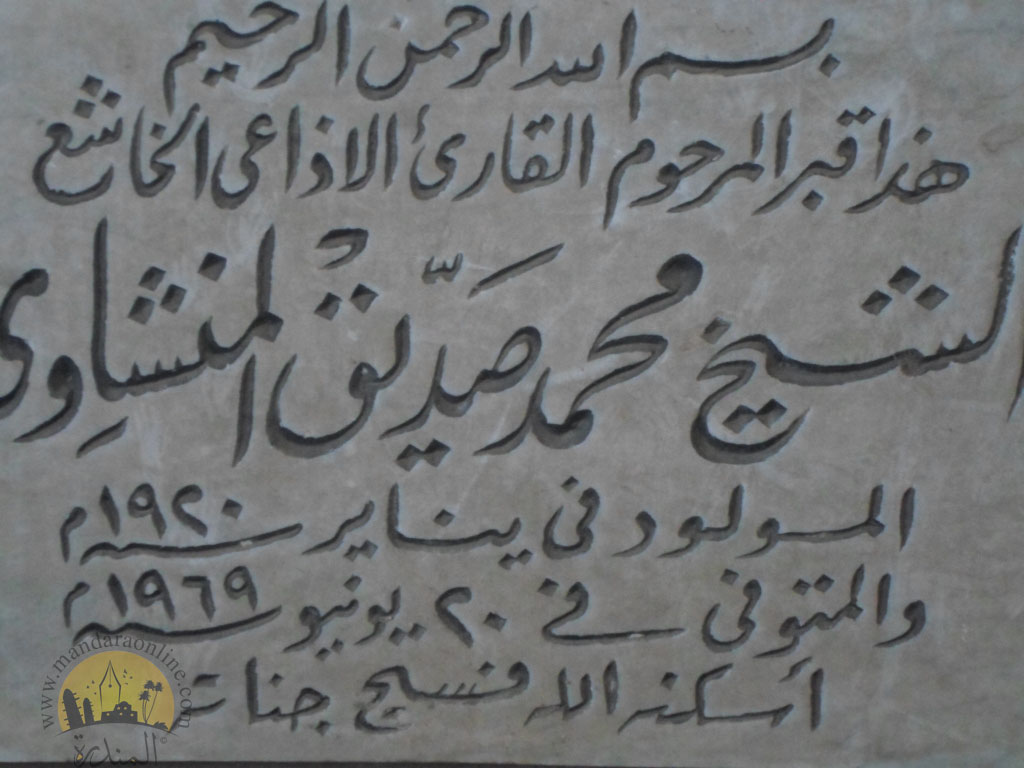 بسم الله الرحمن الرحيم
هذا قبر المرحوم القارئ الاذاعى الخاشع
الشيخ محمد صدّيق المنشاوى
المولود فى يناير سنة ١٩٢٠م
والمتوفى فى ٢٠ يونيو سنة ١٩٦٩م
أسكنه الله فسيح جناته
www.mandaraonline.com
المندرة